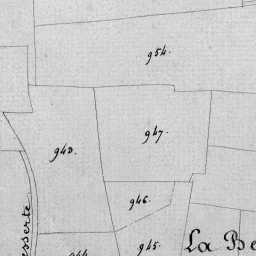 954.
947.
943.
946.
945.
La Be
esserte